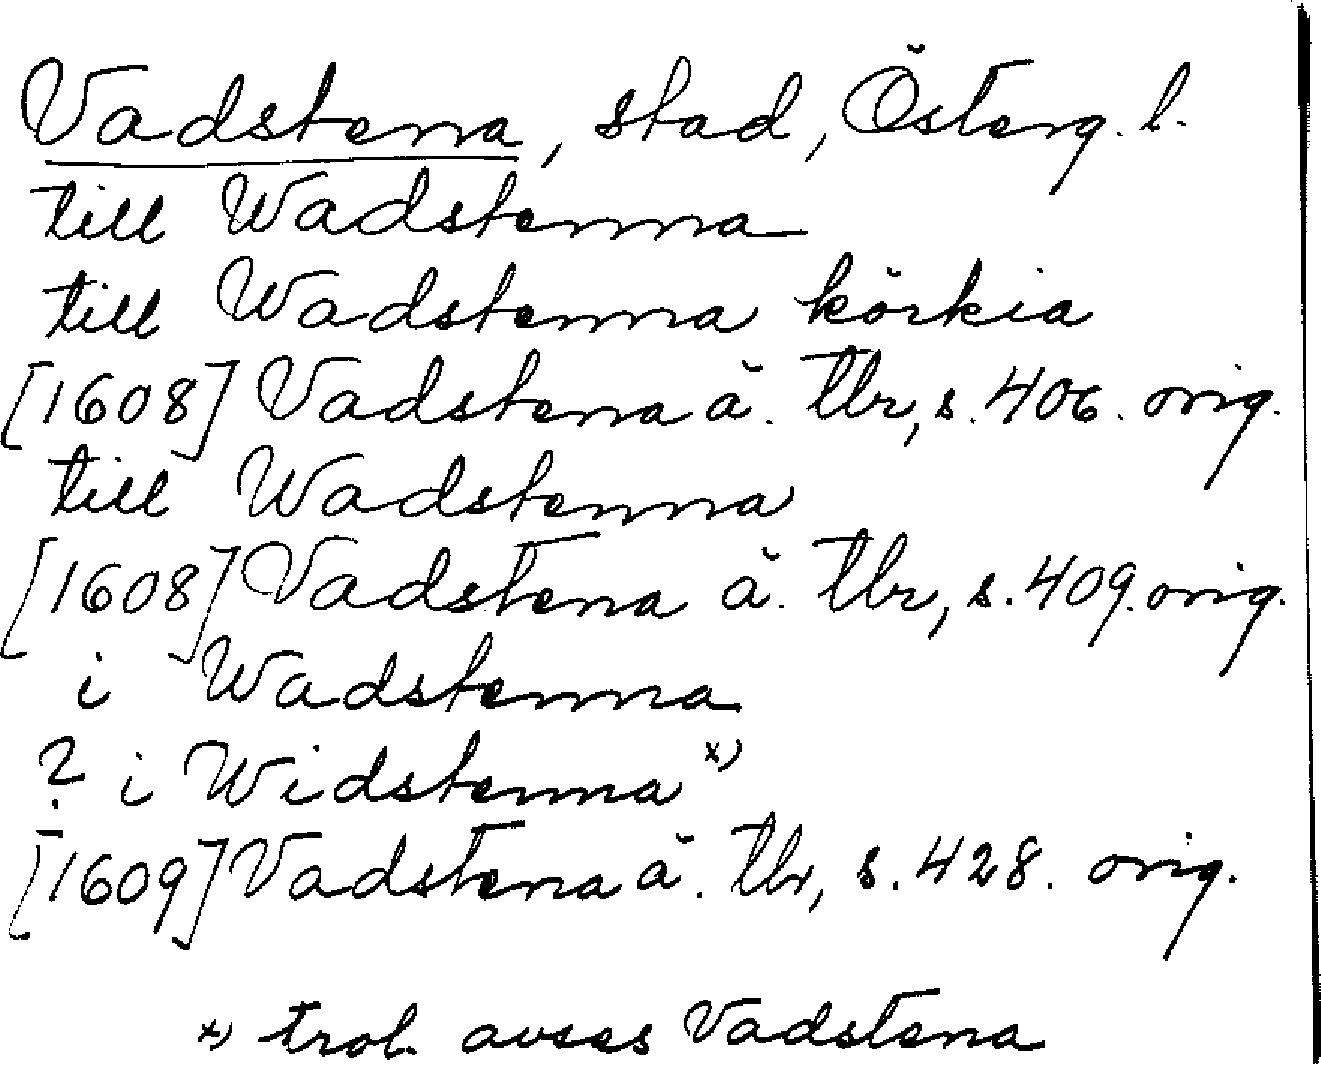 Vadstena, stad, Österg. l.
till Wadstenna
till Wadstenna körkia
[1608] Vadstena ä. tbr, s. 406. orig.
till Wadstenna
[1608] Vadstena ä. tbr, s. 409. orig.
i Wadstenna
? i Widstenna x)
[1609] Vadstena ä. tbr, s. 428. orig.
x) trol. avses Vadstena